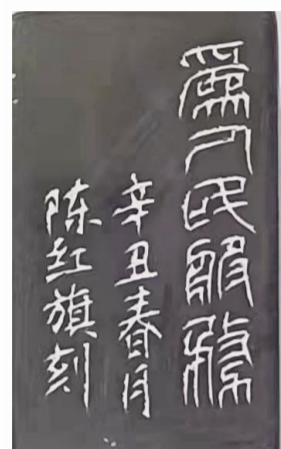 為人民服務
辛丑春月
陈红旗刻